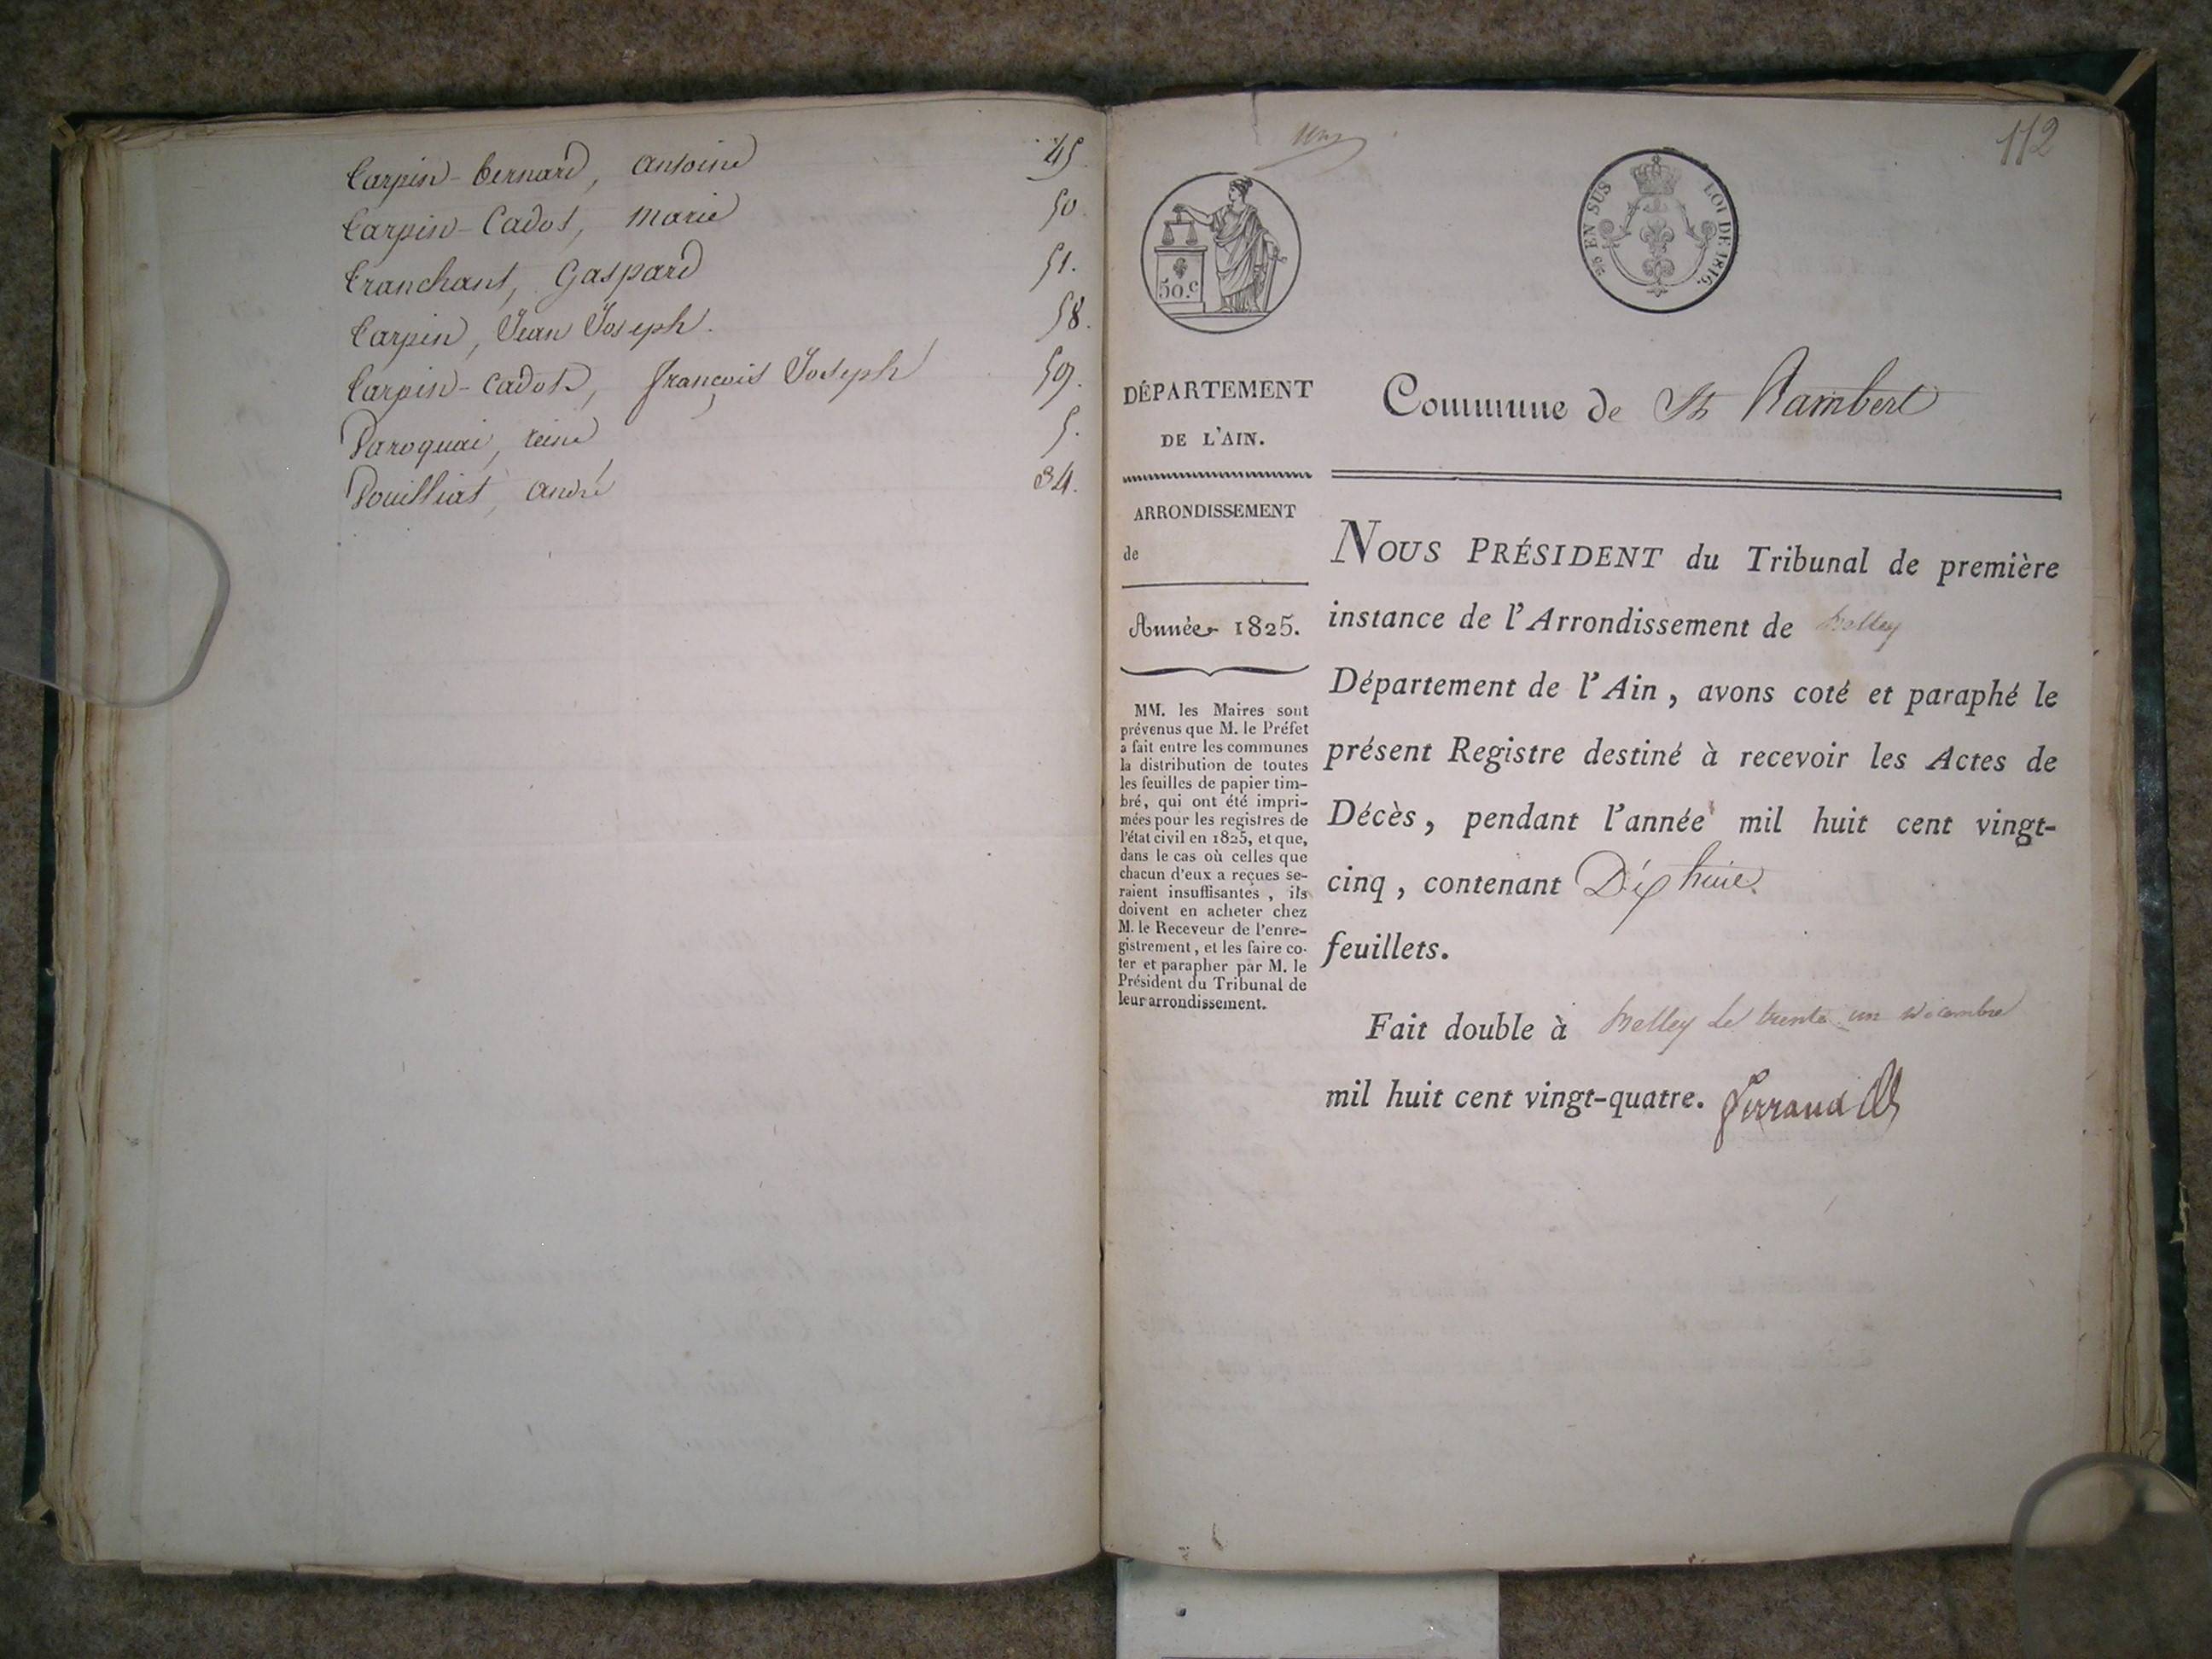 Carpin-bernard, antoine 45.
Carpin-Cadot, marie 50.
Tranchant, Gaspard 51.
Carpin, Jean Joseph. 58.
Carpin-Cadot, françois Joseph 59.
Varoquai, reine 5.
Vouilliat, andré 34.
112
50.c
2/5 EN SUS
LOI DE 1816.
DÉPARTEMENT
DE L'AIN.
ARRONDISSEMENT
de
Année 1825.
MM. les Maires sont
prévenus que M. le Préfet
a fait entre les communes
la distribution de toutes
les feuilles de papier tim-
bré, qui ont été impri-
mées pour les registres de
l'état civil en 1825, et que,
dans le cas où celles que
chacun d'eux a reçues se-
raient insuffisantes, ils
doivent en acheter chez
M. le Receveur de l'enre-
gistrement, et les faire co-
ter et parapher par M. le
Président du Tribunal de
leur arrondissement.
Commune de St Rambert
NOUS PRÉSIDENT du Tribunal de première
instance de l'Arrondissement de belley
Département de l'Ain, avons coté et paraphé le
présent Registre destiné à recevoir les Actes de
Décès, pendant l'année mil huit cent vingt-
cinq, contenant Dix huit
feuillets.
Fait double à belley le trente un décembre
mil huit cent vingt-quatre. ferrand